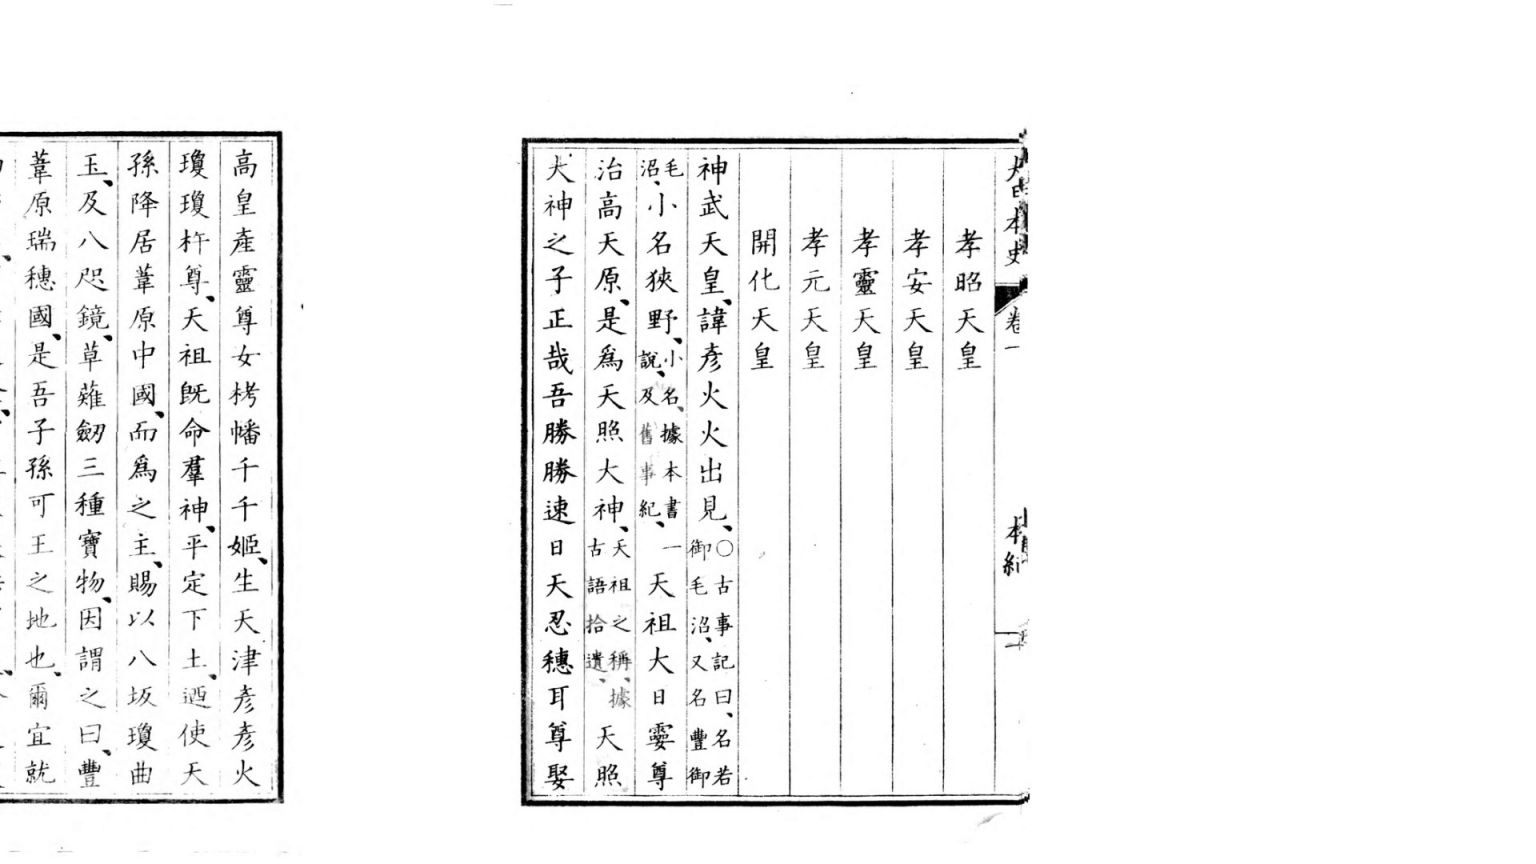 本史
卷一
本紀
孝昭天皇
孝安天皇
孝靈天皇
孝元天皇
開化天皇
神武天皇、諱彥火火出見、○古事記曰、名若御毛沼、又名豐御
毛沼、小名狹野、小名、據本書一說、及舊事紀、天祖大日孁尊
治高天原、是爲天照大神、天祖之稱、據古語拾遺、天照
大神之子正哉吾勝勝速日天忍穗耳尊娶
高皇產靈尊女栲幡千千姬、生天津彥彥火
瓊瓊杵尊、天祖既命羣神、平定下土、迺使天
孫降居葦原中國、而爲之主、賜以八坂瓊曲
玉、及八咫鏡、草薙劒三種寶物、因謂之曰、豐
葦原瑞穗國、是吾子孫可王之地也、爾宜就